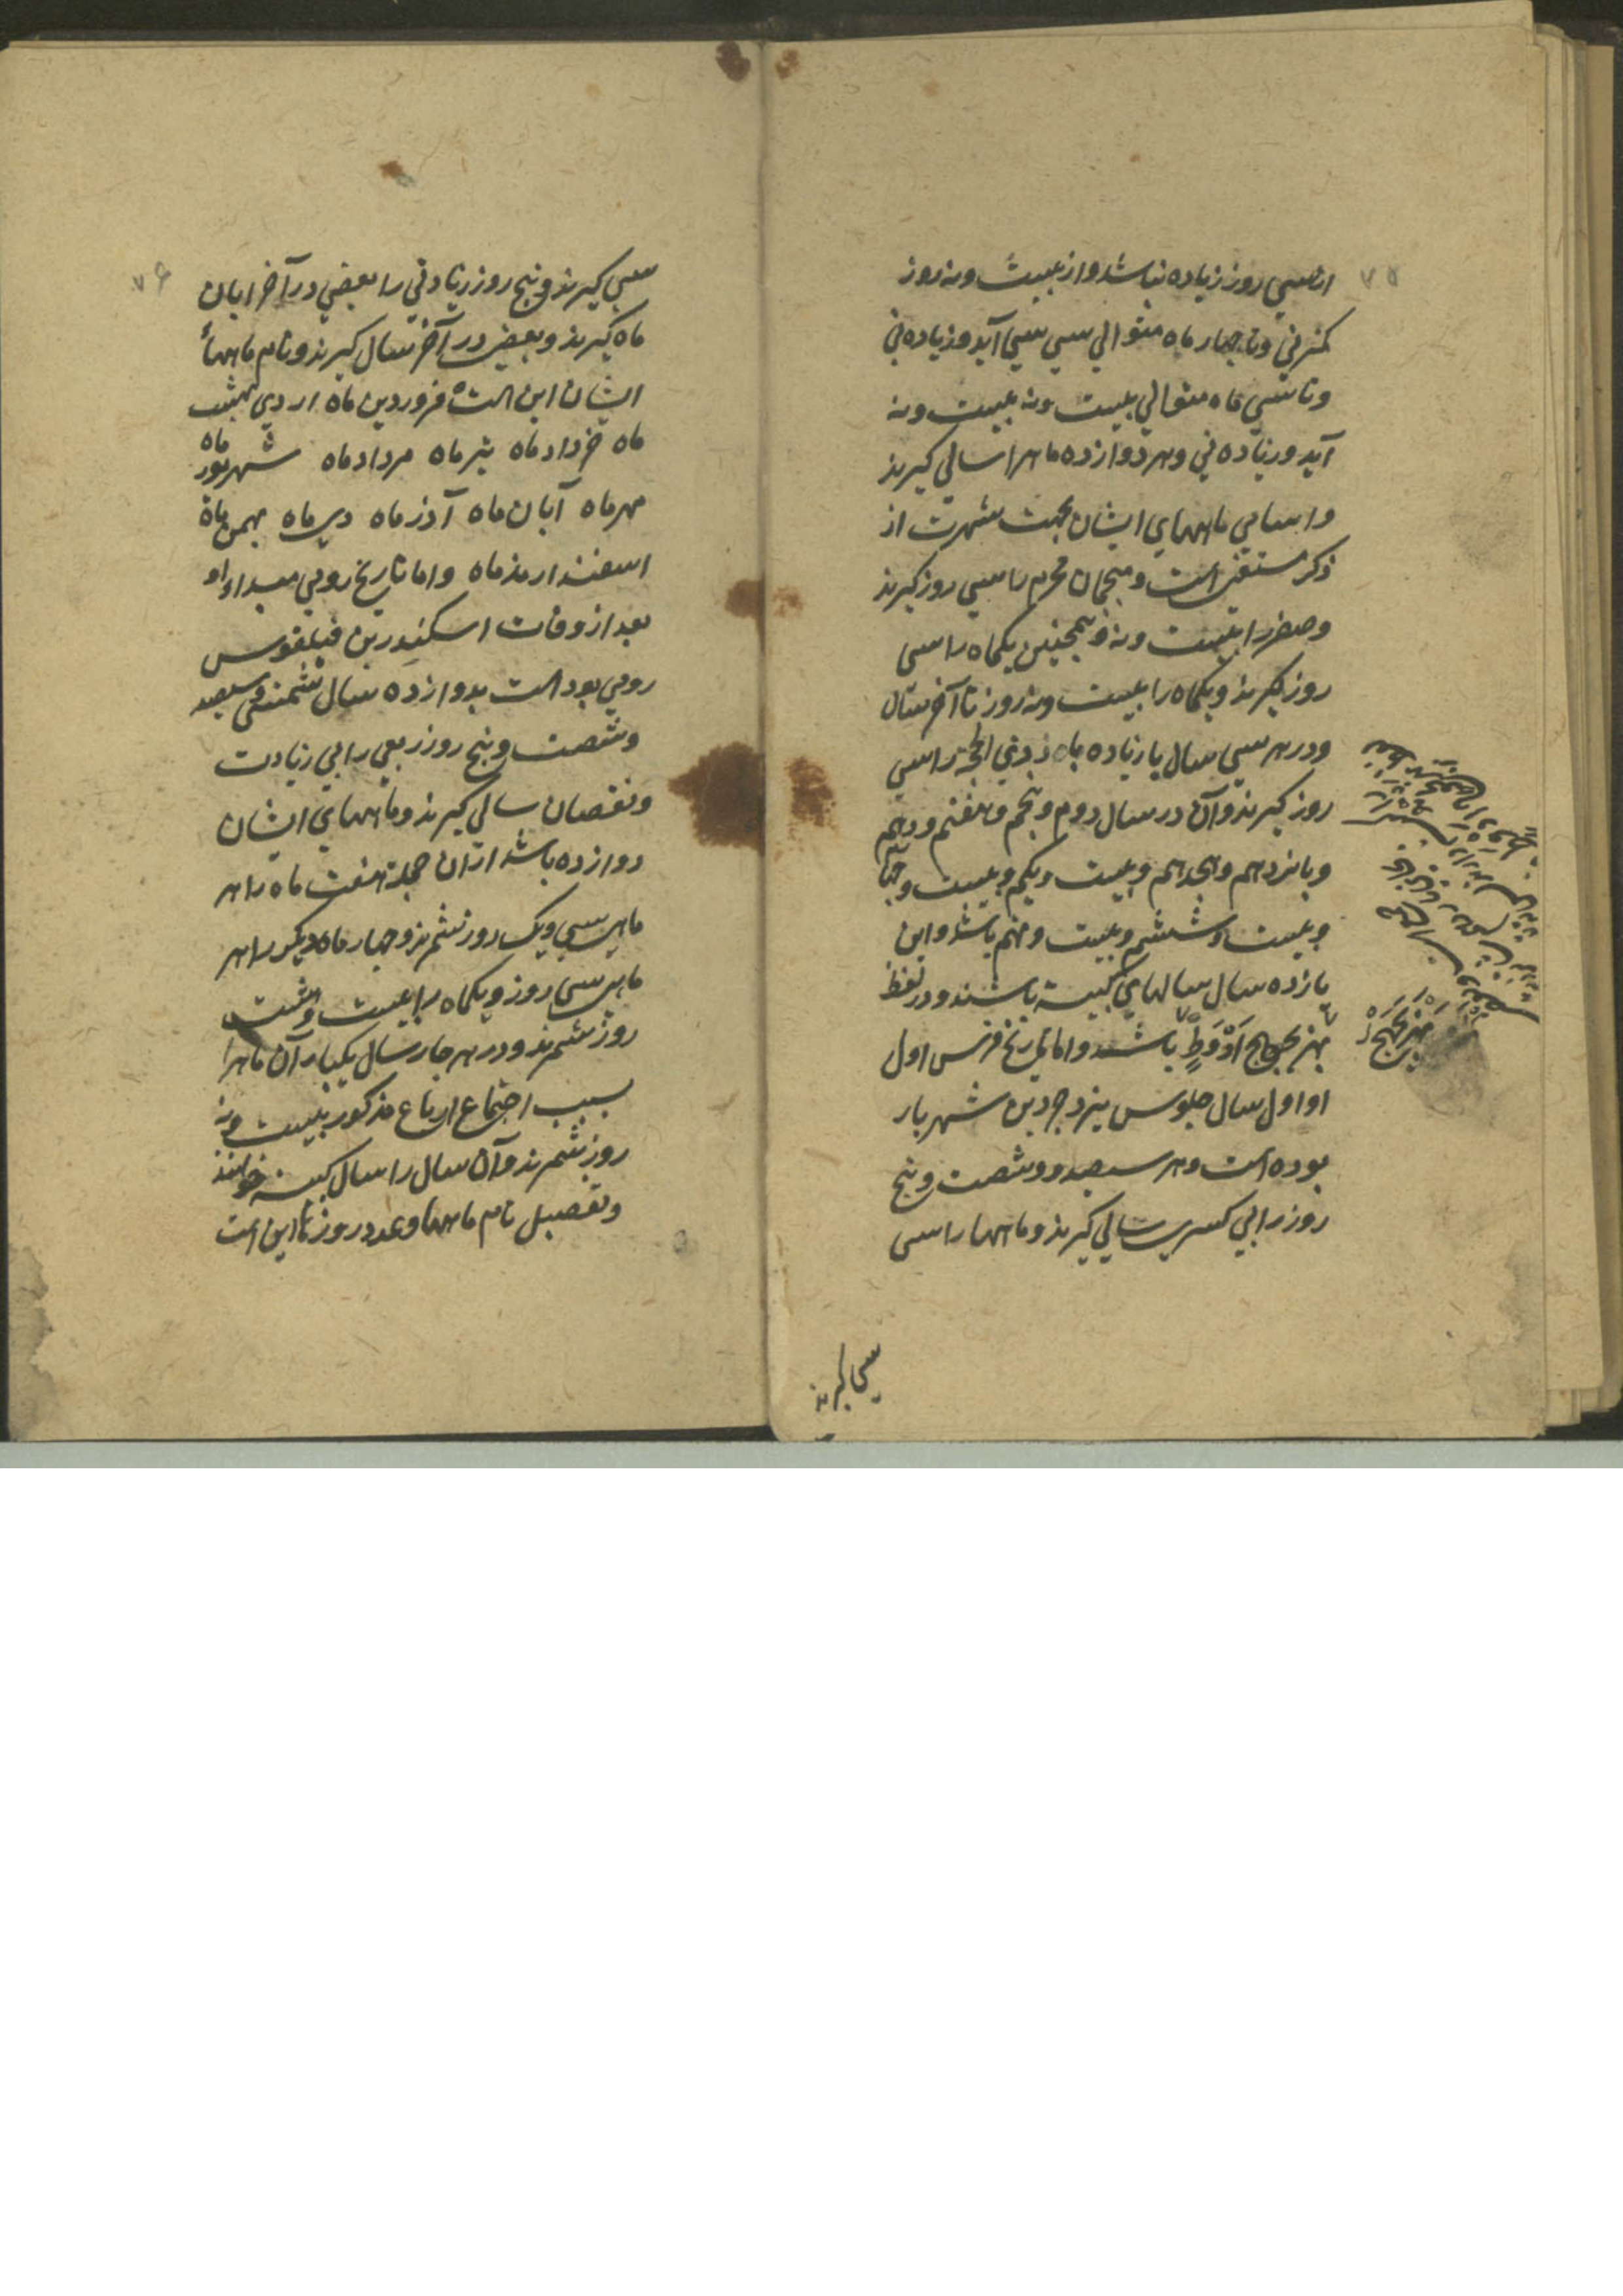 ۷۵
از سی روز زیاده نباشد و از بیست و نه روز
کمتر نی و تا چهار ماه متوالی سی سی آید و زیاده نی
و تا سی ماه متوالی بیست و نه بیست و نه
آید و زیاده نی و هر دوازده ماه را سالی گیرند
و اسامی ماههای ایشان بجهت شهرت از
ذکر مستغنی است و منجمان محرم را سی روز گیرند
و صفر را بیست و نه و همچنین یکماه را سی
روز گیرند و یکماه را بیست و نه روز تا آخر سال
و در هر سی سال یازده بار ذی الحجه را سی
روز گیرند و آن در سال دوم و پنجم و هفتم و دهم
و پانزدهم و هجدهم و بیست و یکم و بیست و چهارم
و بیست و ششم و بیست و نهم باشد و این
یازده سال سالهای کبیسه باشند و در لفظ
بهزیجوح ادوط باشد و اما تاریخ فرس اول
او اول سال جلوس یزدجرد بن شهریار
بوده است و هر سیصد و شصت و پنج
روز را بی کسری سالی گیرند و ماهها را سی
بهزیجهح
سی گیرند
۷۶
سی گیرند و پنج روز زیادتی را بعضی در آخر ابان
ماه گیرند و بعضی در آخر سال گیرند و نام ماههاء
ایشان این است فروردین ماه اردی بهشت
ماه خرداد ماه تیر ماه مرداد ماه شهریور ماه
مهر ماه آبان ماه آذر ماه دی ماه بهمن ماه
اسفندارمذ ماه و اما تاریخ رومی مبداء او
بعد از وفات اسکندر بن فیلقوس
رومی بود است بدوازده سال شمسی و سیصد
و شصت و پنج روز ربعی را بی زیادت
و نقصان سالی گیرند و ماههای ایشان
دوازده باشد از ان جمله هفت ماه را هر
ماهی سی و یک روز شمرند و چهار ماه دیگر را هر
ماهی سی روز و یکماه را بیست و هشت
روز شمرند و در هر چار سال یکبار آن ماه را
بسبب اجتماع ارباع مذکور بیست و نه
روز شمرند و آن سال را سال کبیسه خوانند
و تفصیل نام ماهها و عدد روزها این است